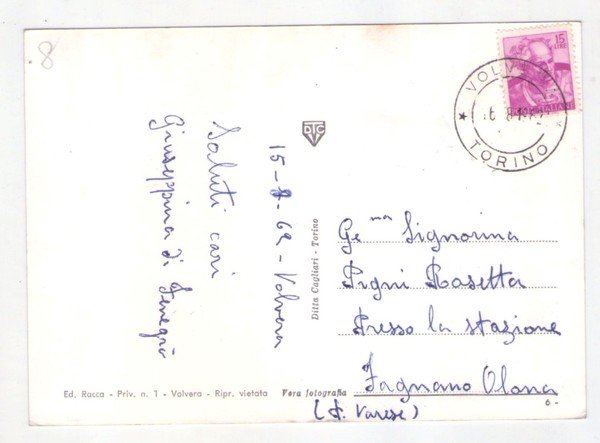 8
15 LIRE
VOLV
TORINO
DTC
Saluti cari
Giuseppina di
15-8-62-Volvera
Ditta Cagliari - Torino
Ge.ma Signorina
Pigni Rosetta
Presso la stazione
Fagnano Olona
(P. Varese)
Ed. Racca - Priv. n. 1 - Volvera - Ripr. vietata Vera fotografia
6 -